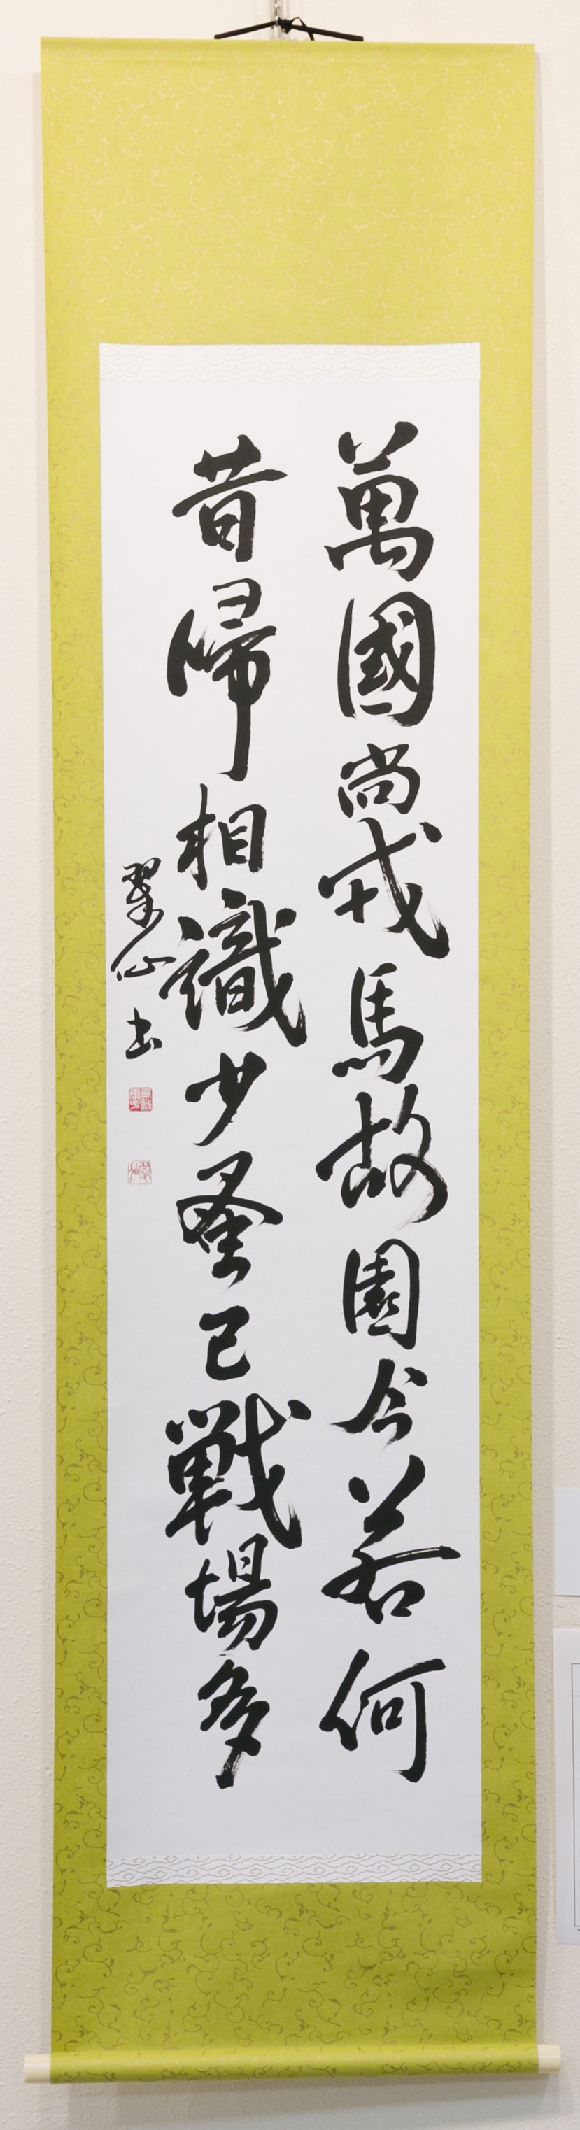 萬國尚戎馬故園今若何
昔帰相識少蚤已戦場多
翠仙書